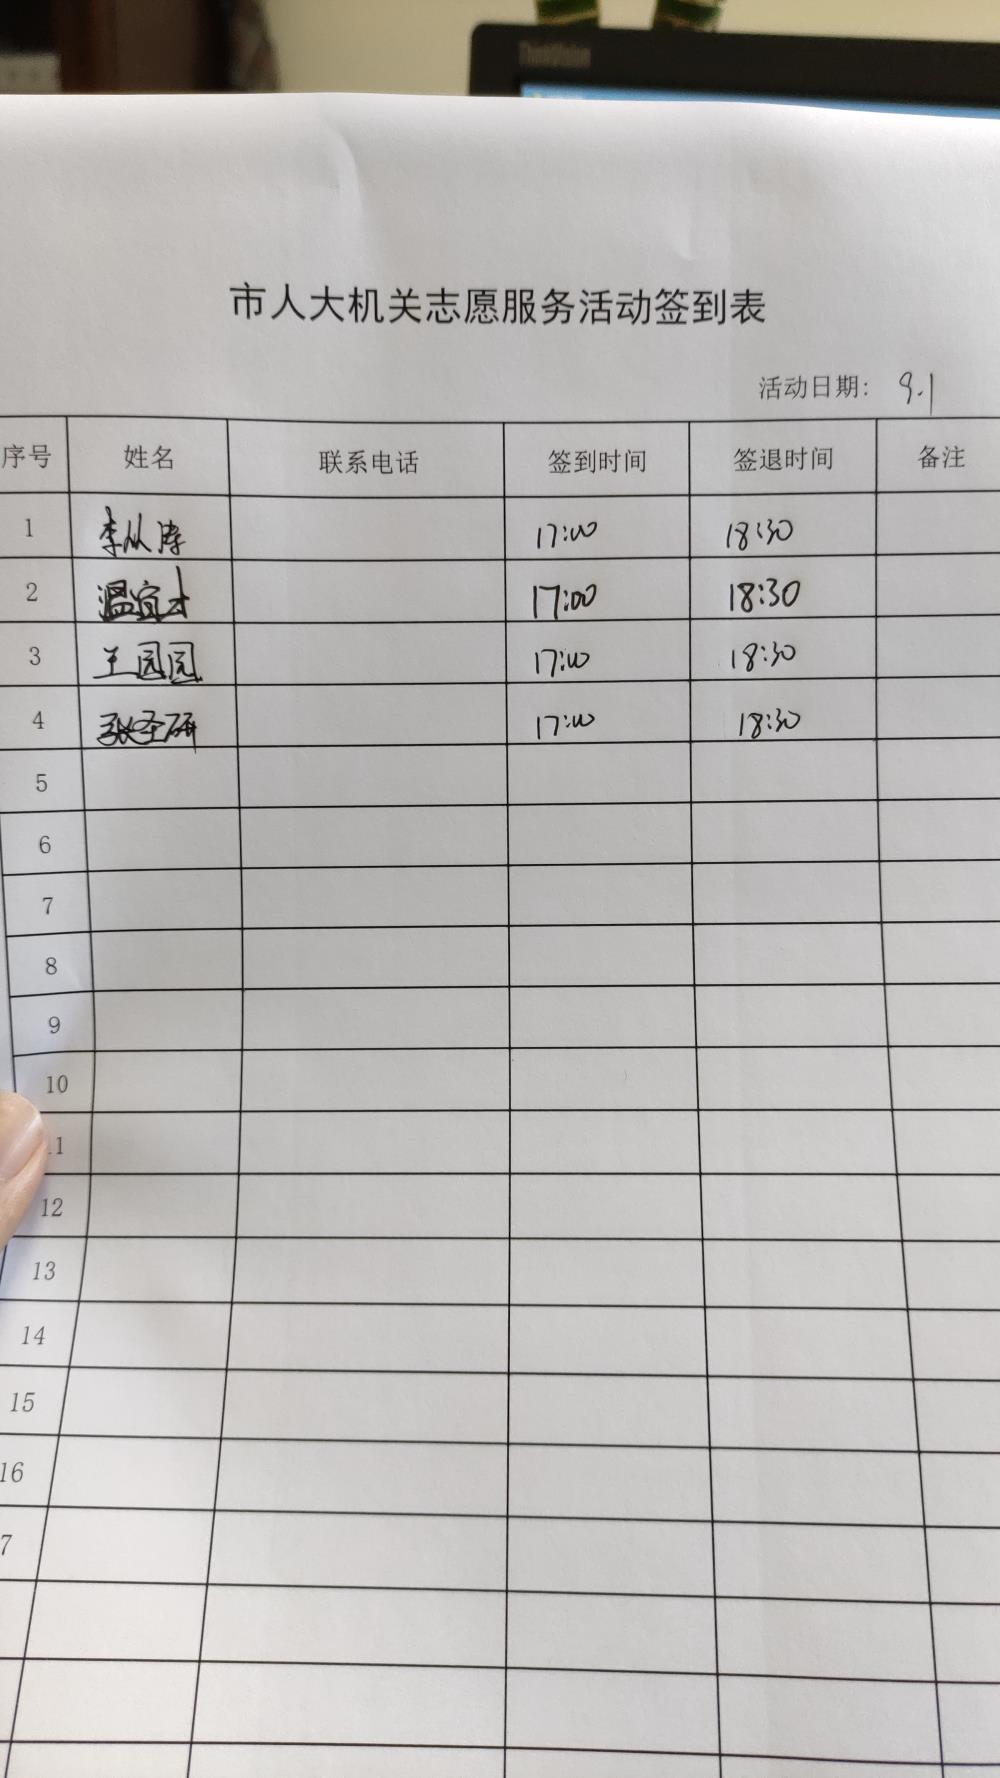 ThinkVision
市人大机关志愿服务活动签到表
活动日期: 9.1
序号 姓名 联系电话 签到时间 签退时间 备注
1 李从涛 17:00 18:30
2 温宜才 17:00 18:30
3 王园园 17:00 18:30
4 张圣研 17:00 18:30
5
6
7
8
9
10
11
12
13
14
15
16
7